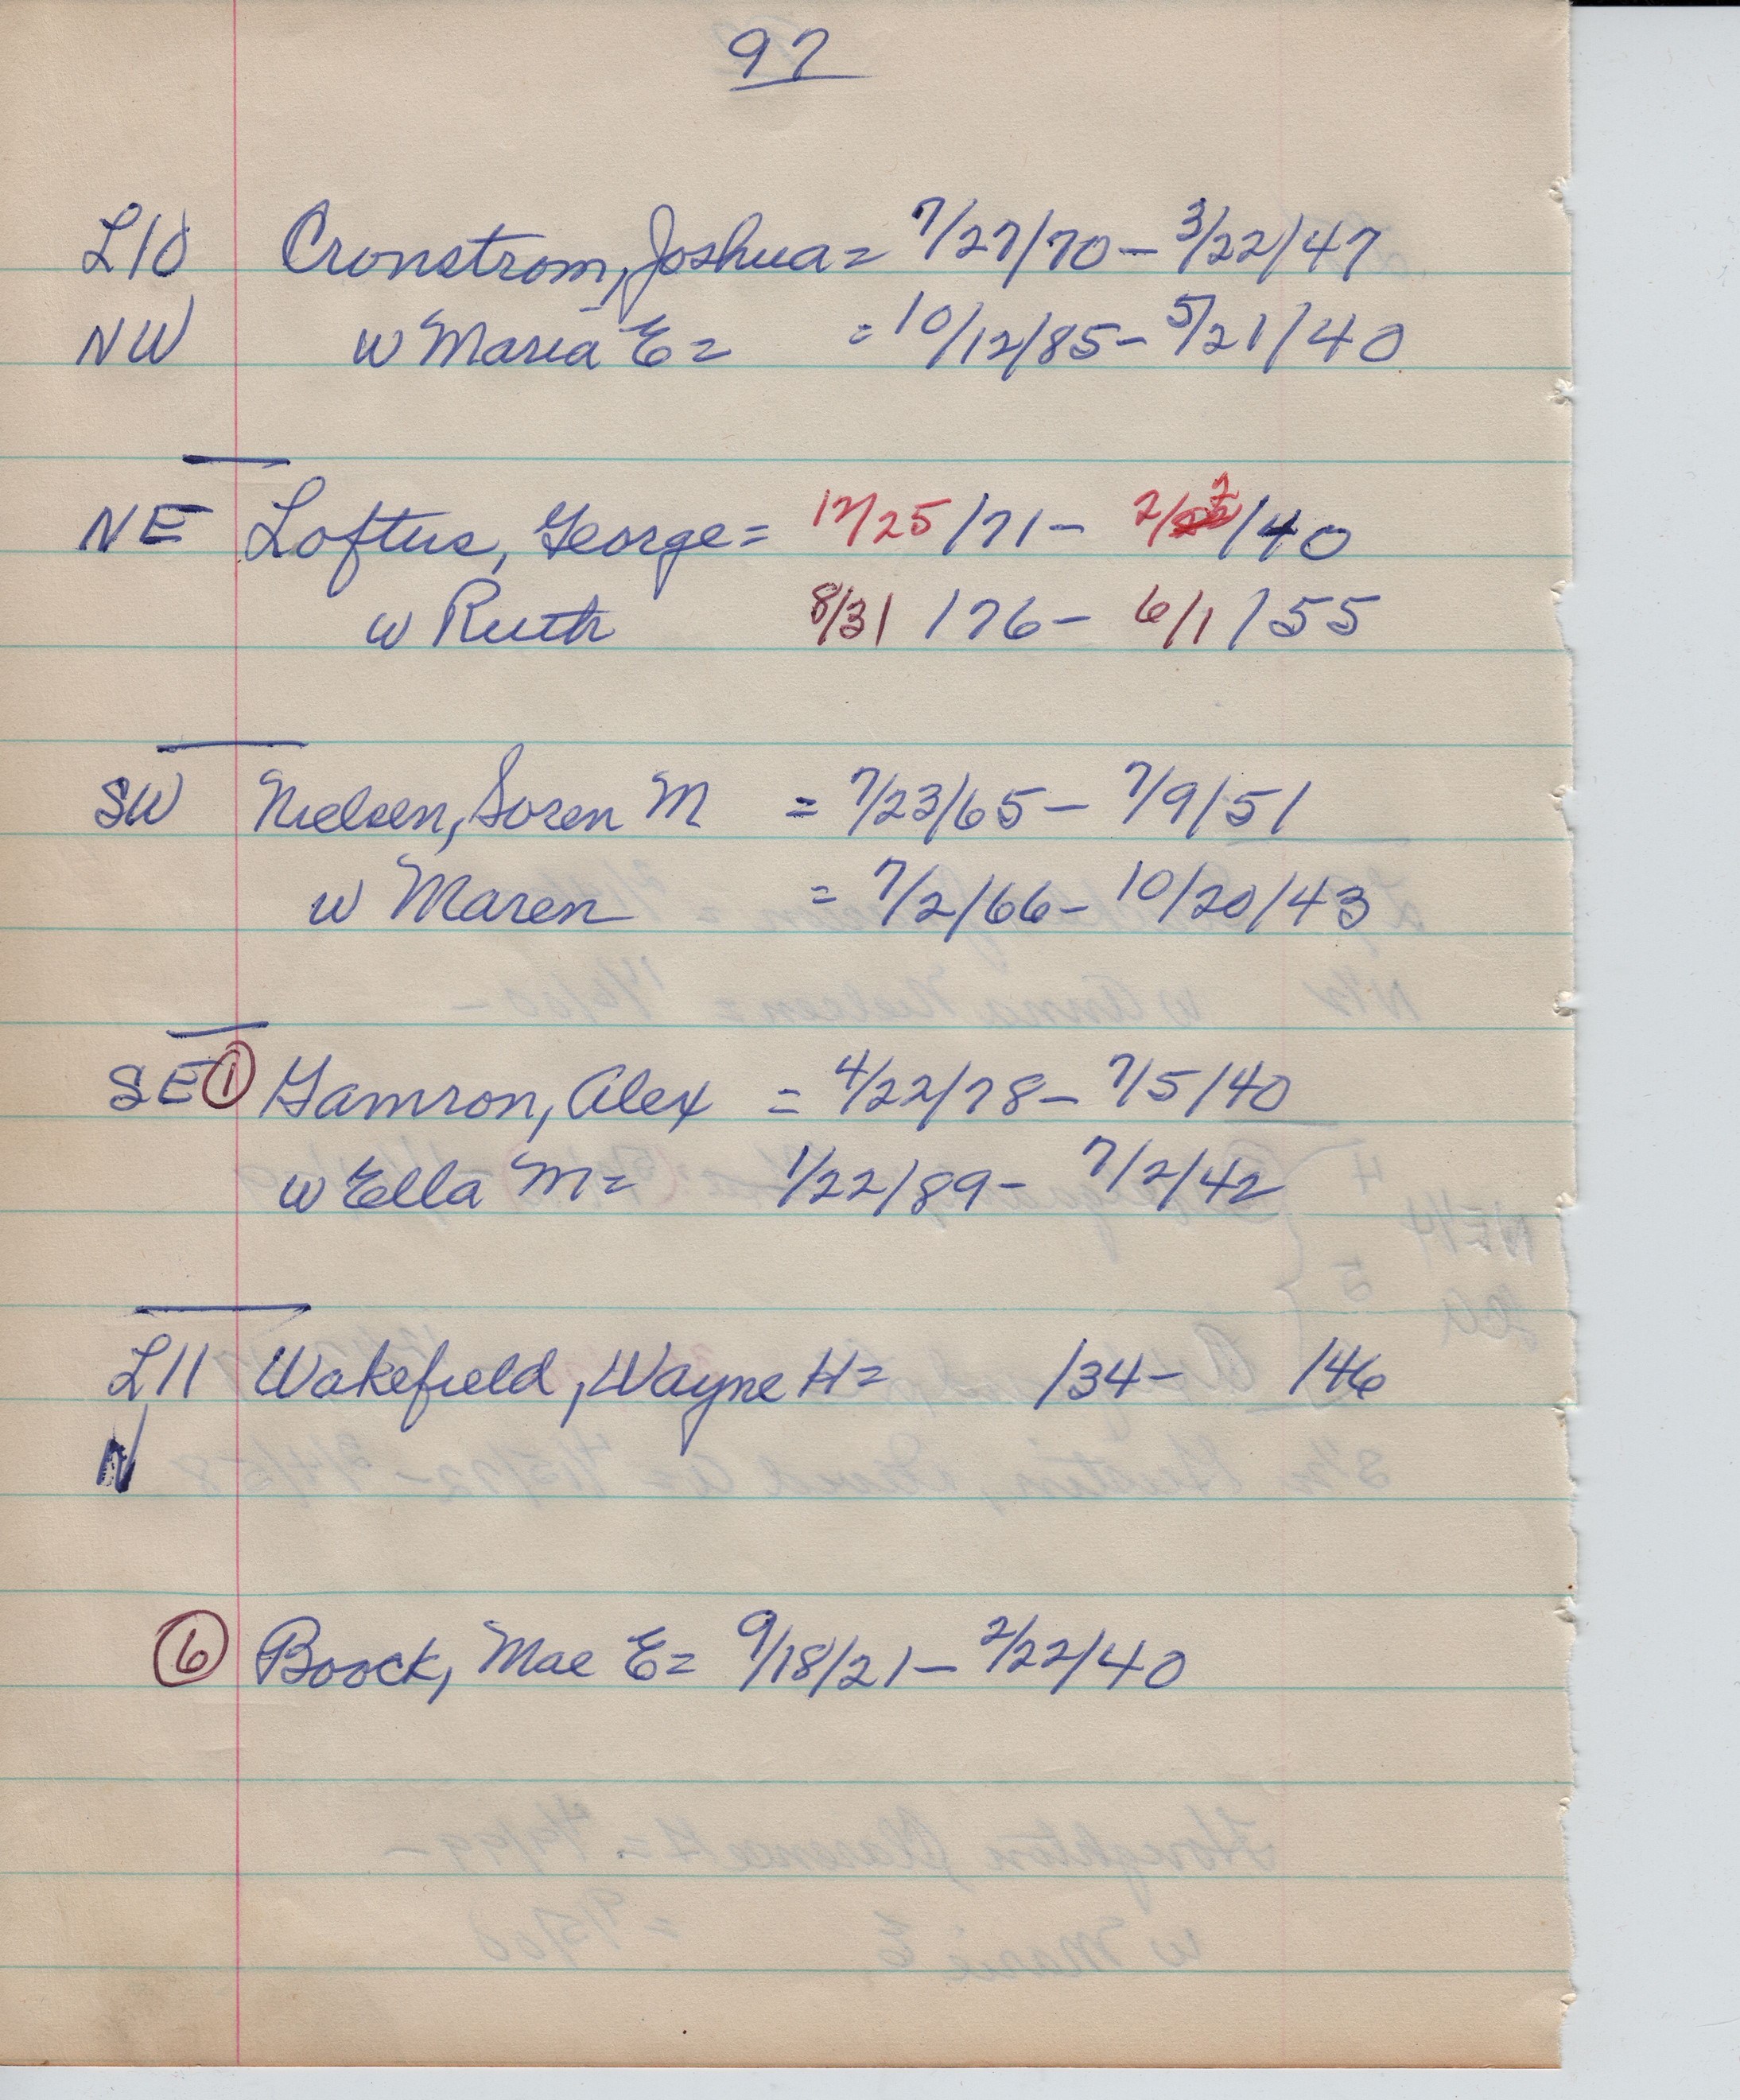 97
L10 Cronstrom, Joshua = 7/27/70 - 3/22/47
NW w Maria E = = 10/12/85 - 5/21/40
NE Loftus, George = 12/25/71 - 2/22/40
w Ruth 8/31/76 - 6/1/55
SW Nielsen, Soren M = 7/23/65 - 7/9/51
w Maren = 7/2/66 - 10/20/43
SE 1 Gamron, Alex = 4/22/78 - 7/5/40
w Ella M = 1/22/89 - 7/2/42
L11 Wakefield, Wayne H = /34 - /46
N
6 Boock, Mae E = 9/18/21 - 2/22/40